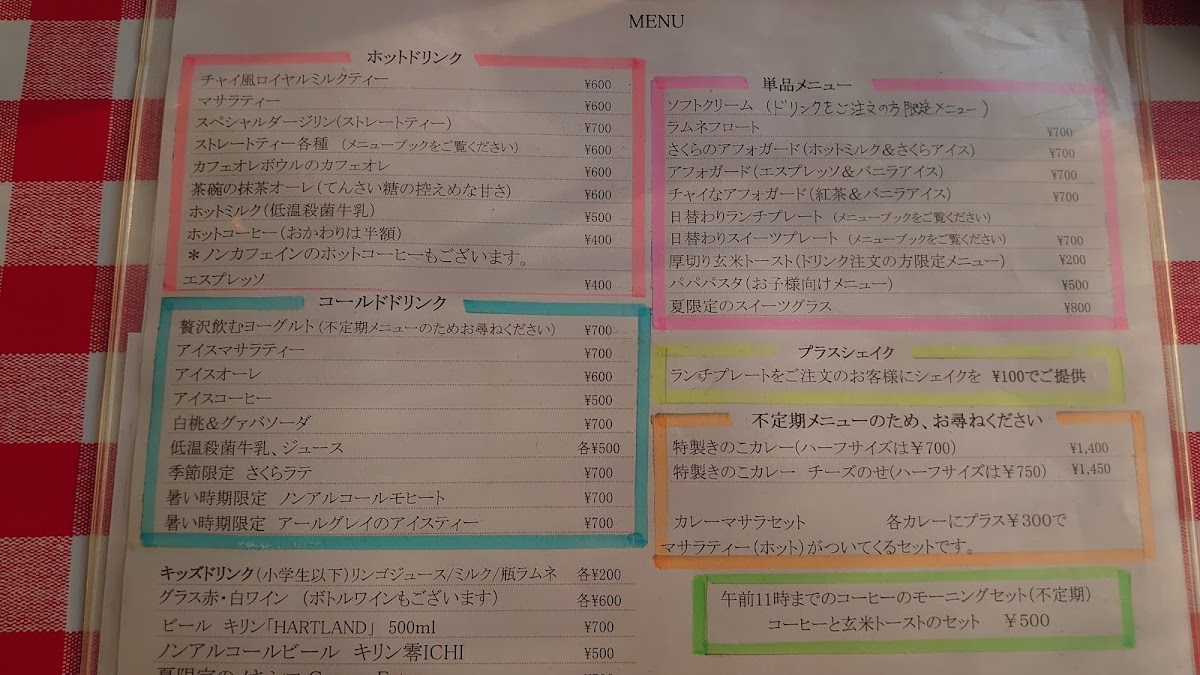 MENU
ホットドリンク
チャイ風ロイヤルミルクティー ¥600
マサラティー ¥600
スペシャルダージリン(ストレートティー) ¥700
ストレートティー各種 (メニューブックをご覧ください) ¥600
カフェオレボウルのカフェオレ ¥600
茶碗の抹茶オーレ(てんさい糖の控えめな甘さ) ¥600
ホットミルク(低温殺菌牛乳) ¥500
ホットコーヒー(おかわりは半額) ¥400
＊ノンカフェインのホットコーヒーもございます。
エスプレッソ ¥400
コールドドリンク
贅沢飲むヨーグルト(不定期メニューのためお尋ねください) ¥700
アイスマサラティー ¥700
アイスオーレ ¥600
アイスコーヒー ¥500
白桃&グァバソーダ ¥700
低温殺菌牛乳、ジュース 各¥500
季節限定 さくらラテ ¥700
暑い時期限定 ノンアルコールモヒート ¥700
暑い時期限定 アールグレイのアイスティー ¥700
キッズドリンク(小学生以下)リンゴジュース/ミルク/瓶ラムネ 各¥200
グラス赤・白ワイン (ボトルワインもございます) 各¥600
ビール キリン「HARTLAND」 500ml ¥700
ノンアルコールビール キリン零ICHI ¥500
単品メニュー
ソフトクリーム (ドリンクをご注文の方限定メニュー)
ラムネフロート ¥700
さくらのアフォガード(ホットミルク&さくらアイス) ¥700
アフォガード(エスプレッソ&バニラアイス) ¥700
チャイなアフォガード(紅茶&バニラアイス) ¥700
日替わりランチプレート (メニューブックをご覧ください)
日替わりスイーツプレート (メニューブックをご覧ください) ¥700
厚切り玄米トースト(ドリンク注文の方限定メニュー) ¥200
パパパスタ(お子様向けメニュー) ¥500
夏限定のスイーツグラス ¥800
プラスシェイク
ランチプレートをご注文のお客様にシェイクを ¥100でご提供
不定期メニューのため、お尋ねください
特製きのこカレー(ハーフサイズは¥700) ¥1,400
特製きのこカレー チーズのせ(ハーフサイズは¥750) ¥1,450
カレーマサラセット 各カレーにプラス¥300で
マサラティー(ホット)がついてくるセットです。
午前11時までのコーヒーのモーニングセット(不定期)
コーヒーと玄米トーストのセット ¥500